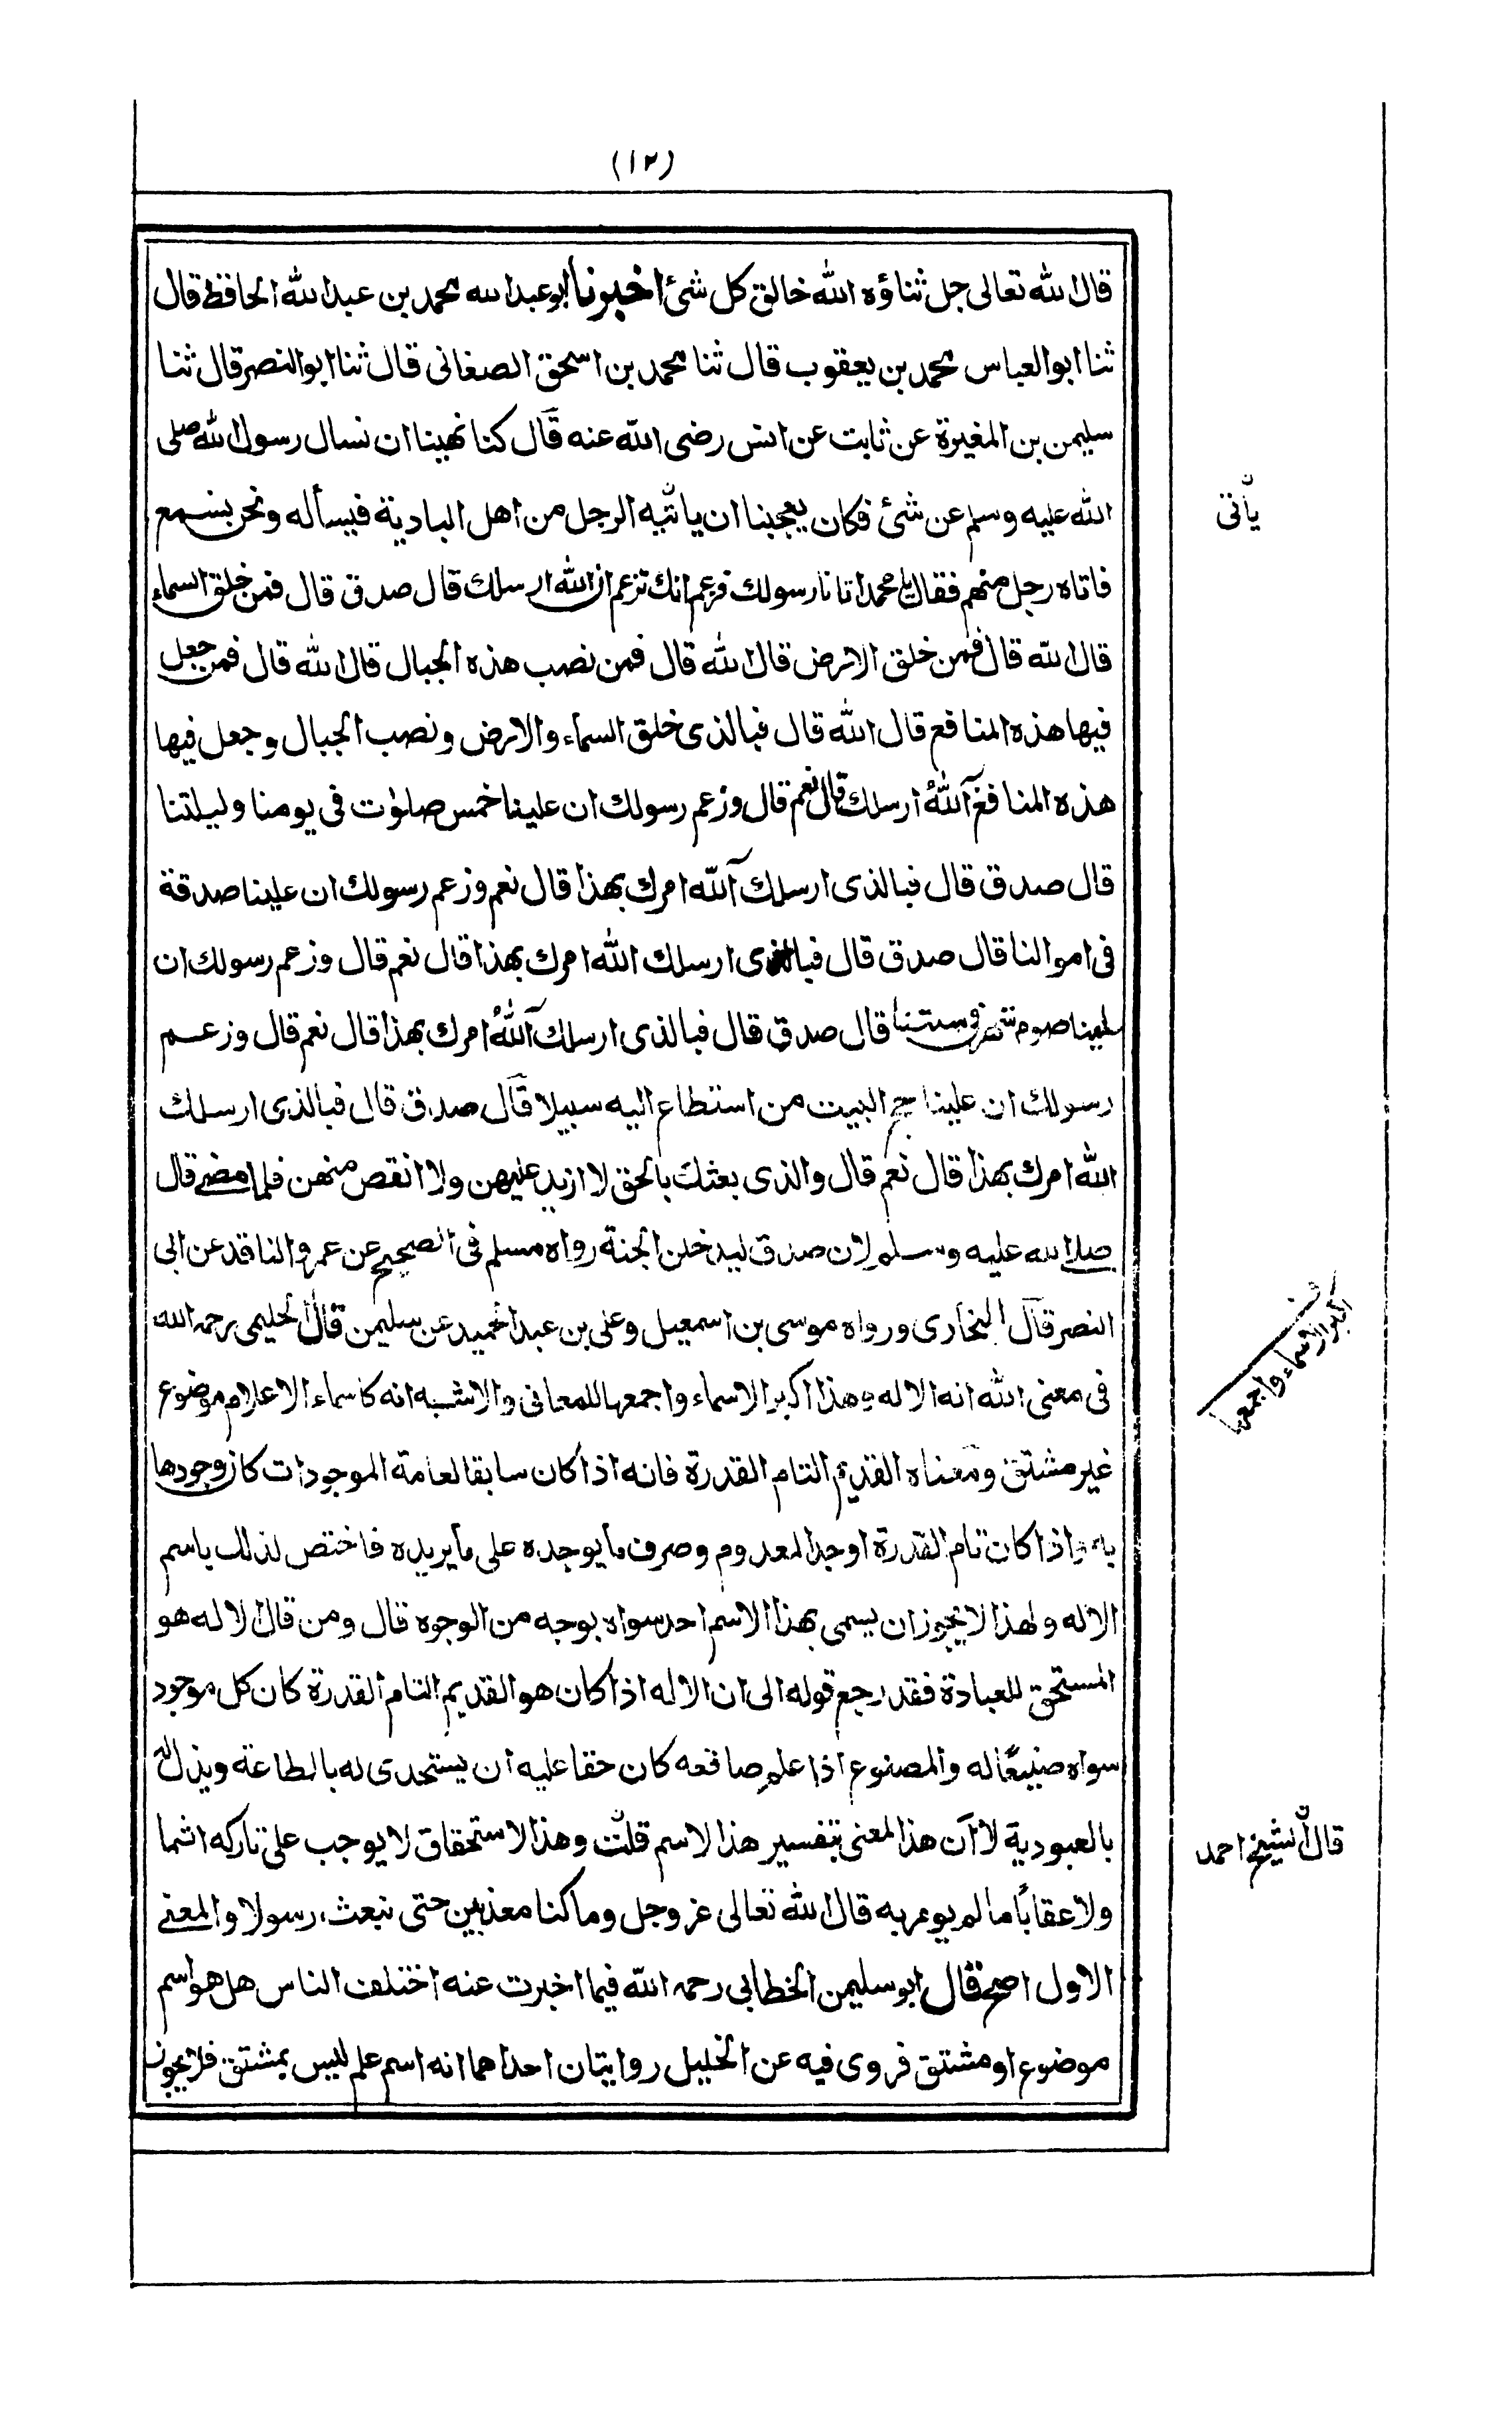 (١٢)
قال الله تعالى جل ثناؤه الله خالق كل شئ اخبرنا ابو عبد الله محمد بن عبد الله الحافظ قال
ثنا ابو العباس محمد بن يعقوب قال ثنا محمد بن اسحق الصغانى قال ثنا ابو النضر قال ثنا
سليمن بن المغيرة عن ثابت عن انس رضى الله عنه قال كنا نهينا ان نسال رسول الله صلى
الله عليه وسلم عن شئ فكان يعجبنا ان ياتيه الرجل من اهل البادية فيسأله ونحن نسمع
يأتى
فاتاه رجل منهم فقال يا محمد اتانا رسولك فزعم انك تزعم ان الله ارسلك قال صدق قال فمن خلق السماء
قال الله قال فمن خلق الارض قال الله قال فمن نصب هذه الجبال قال الله قال فمن جعل
فيها هذه المنافع قال الله قال فبالذى خلق السماء والارض ونصب الجبال وجعل فيها
هذه المنافع آلله ارسلك قال نعم قال وزعم رسولك ان علينا خمس صلوٰت فى يومنا وليلتنا
قال صدق قال فبالذى ارسلك آلله امرك بهذا قال نعم وزعم رسولك ان علينا صدقة
فى اموالنا قال صدق قال فبالذى ارسلك الله امرك بهذا قال نعم قال وزعم رسولك ان
علينا صوم شهر فى سنتنا قال صدق قال فبالذى ارسلك آللهُ امرك بهذا قال نعم قال وزعم
رسولك ان علينا حج البيت من استطاع اليه سبيلا قال صدق قال فبالذى ارسلك
الله امرك بهذا قال نعم قال والذى بعثك بالحق لا ازيد عليهن ولا انقص منهن فلما مضى قال
صلى الله عليه وسلم لان صدق ليدخلن الجنة رواه مسلم فى الصحيح عن عمرو الناقد عن ابى
النضر قال البخارى ورواه موسى بن اسمعيل وعلى بن عبد الحميد عن سليمن قال الحليمى رحمه الله
فى معنى الله انه الاله وهذا اكبر الاسماء واجمعها للمعانى والاشبه انه كاسماء الاعلام موضوع
اكبر الاسماء واجمعها
غير مشتق ومعناه القديم التام القدرة فانه اذا كان سابقا لعامة الموجودات كان وجودها
به واذا كان تام القدرة اوجد المعدوم وصرف ما يوجده على ما يريده فاختص لذلك باسم
الاله ولهذا لا يجوز ان يسمى بهذا الاسم احد سواه بوجه من الوجوه قال ومن قال الاله هو
المستحق للعبادة فقد رجع قوله الى ان الاله اذا كان هو القديم التام القدرة كان كل موجود
سواه صنيعًا له والمصنوع اذا علم صانعه كان حقا عليه ان يستخذى له بالطاعة ويذل له
بالعبودية لا ان هذا المعنى بتفسير هذا الاسم قلت وهذا الاستحقاق لا يوجب على تاركه اثما
قال الشيخ احمد
ولا عقابًا ما لم يومر به قال الله تعالى عز وجل وما كنا معذبين حتى نبعث رسولا والمعنى
الاول اصح قال ابو سليمن الخطابى رحمه الله فيما اخبرت عنه اختلف الناس هل هو اسم
موضوع او مشتق فروى فيه عن الخليل روايتان احداهما انه اسم علم ليس بمشتق فلا يجوز